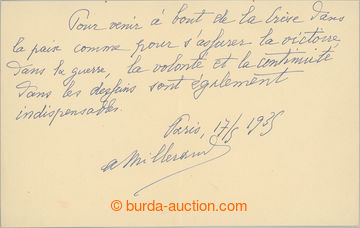 Pour venir à bout de la Crise dans
la paix comme pour s'assurer la victoire
dans la guerre, la volonté et la continuité
dans les desseins sont également
indispensables.
Paris, 17/5 1935
a Millerand
burda-auction.com